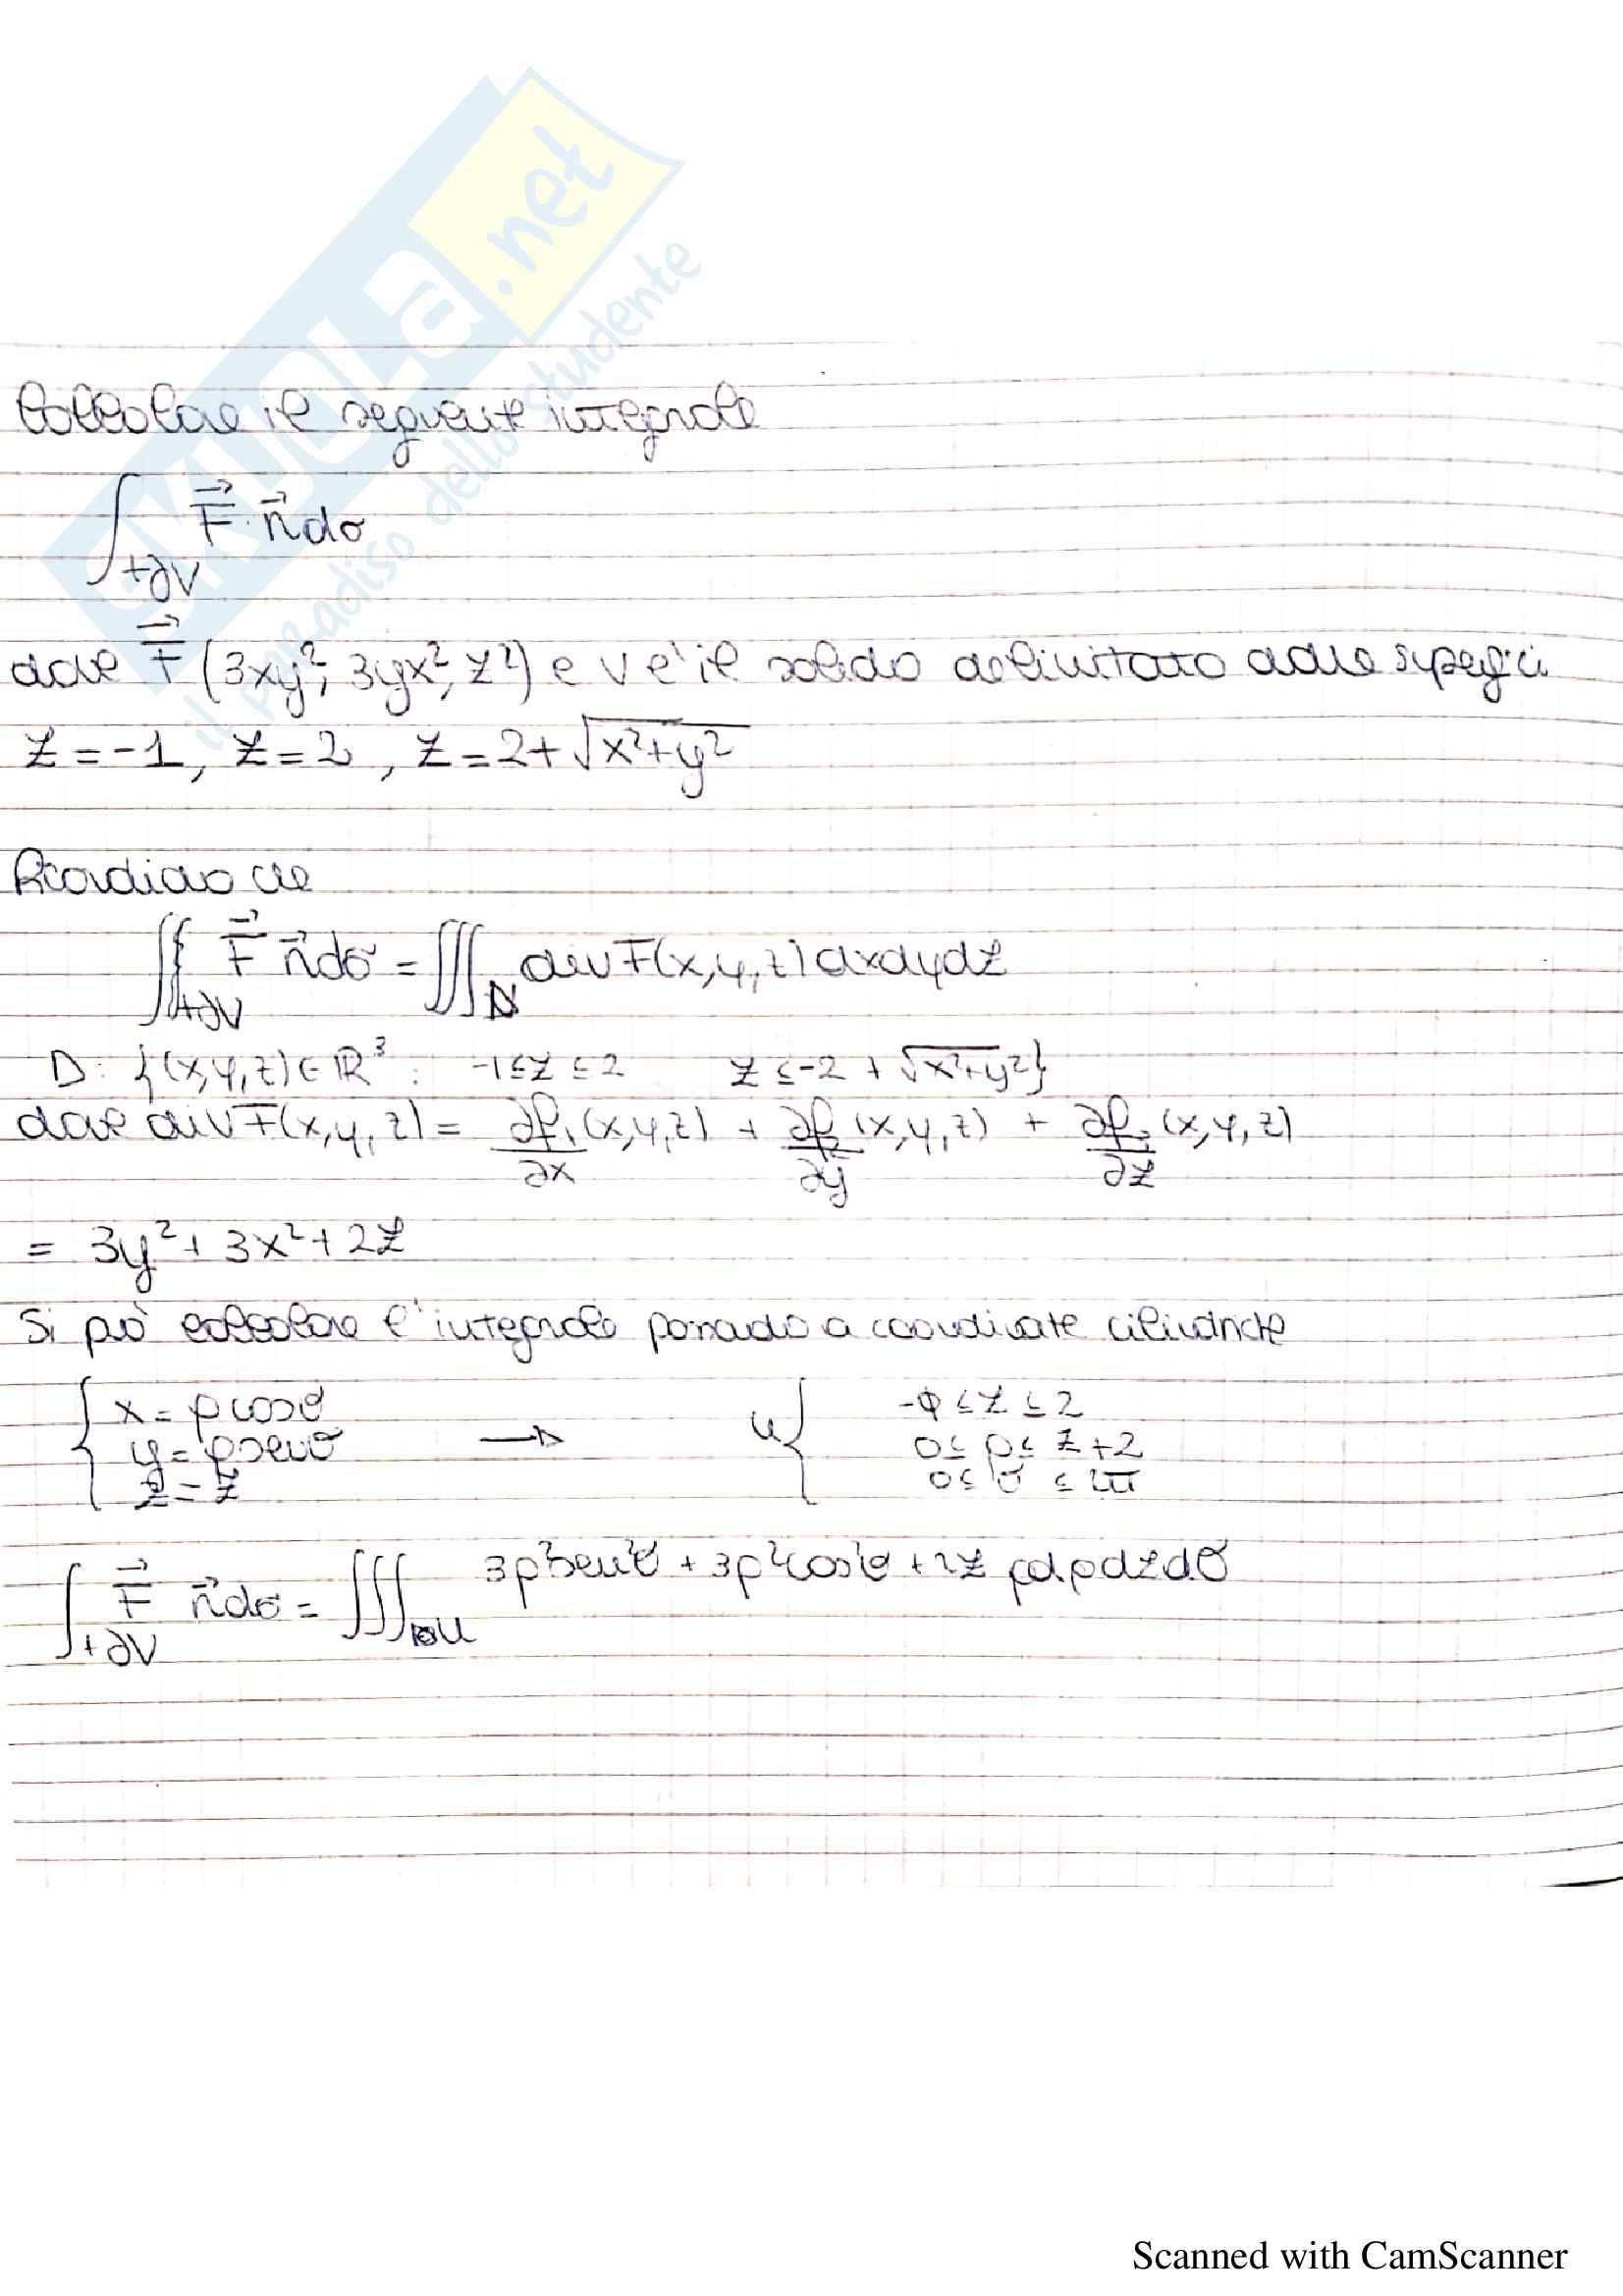 SKUOLa.net
il paradiso dello studente
Calcolare il seguente integrale
∫+∂V F⃗·n⃗ dσ
dove F⃗ (3xy², 3yx², z²) e V è il solido delimitato dalle superfici
z = -1, z = 2, z = 2 + √x²+y²
Ricordiamo che
∬+∂V F⃗ n⃗ dσ = ∭ div F(x,y,z) dx dy dz
D: {(x,y,z) ∈ ℝ³ : -1 ≤ z ≤ 2 z ≤ -2 + √x²+y²}
dove div F(x,y,z) = ∂f₁/∂x (x,y,z) + ∂f₂/∂y (x,y,z) + ∂f₃/∂z (x,y,z)
= 3y² + 3x² + 2z
Si può calcolare l'integrale passando a coordinate cilindriche
{ x = ρcosθ y = ρsenθ z = z → U { ≤ z ≤ 2 0 ≤ ρ ≤ z+2 0 ≤ θ ≤ 2π
∫+∂V F⃗ n⃗ dσ = ∭U 3ρ²sen²θ + 3ρ²cos²θ + 2z ρdρdzdθ
Scanned with CamScanner